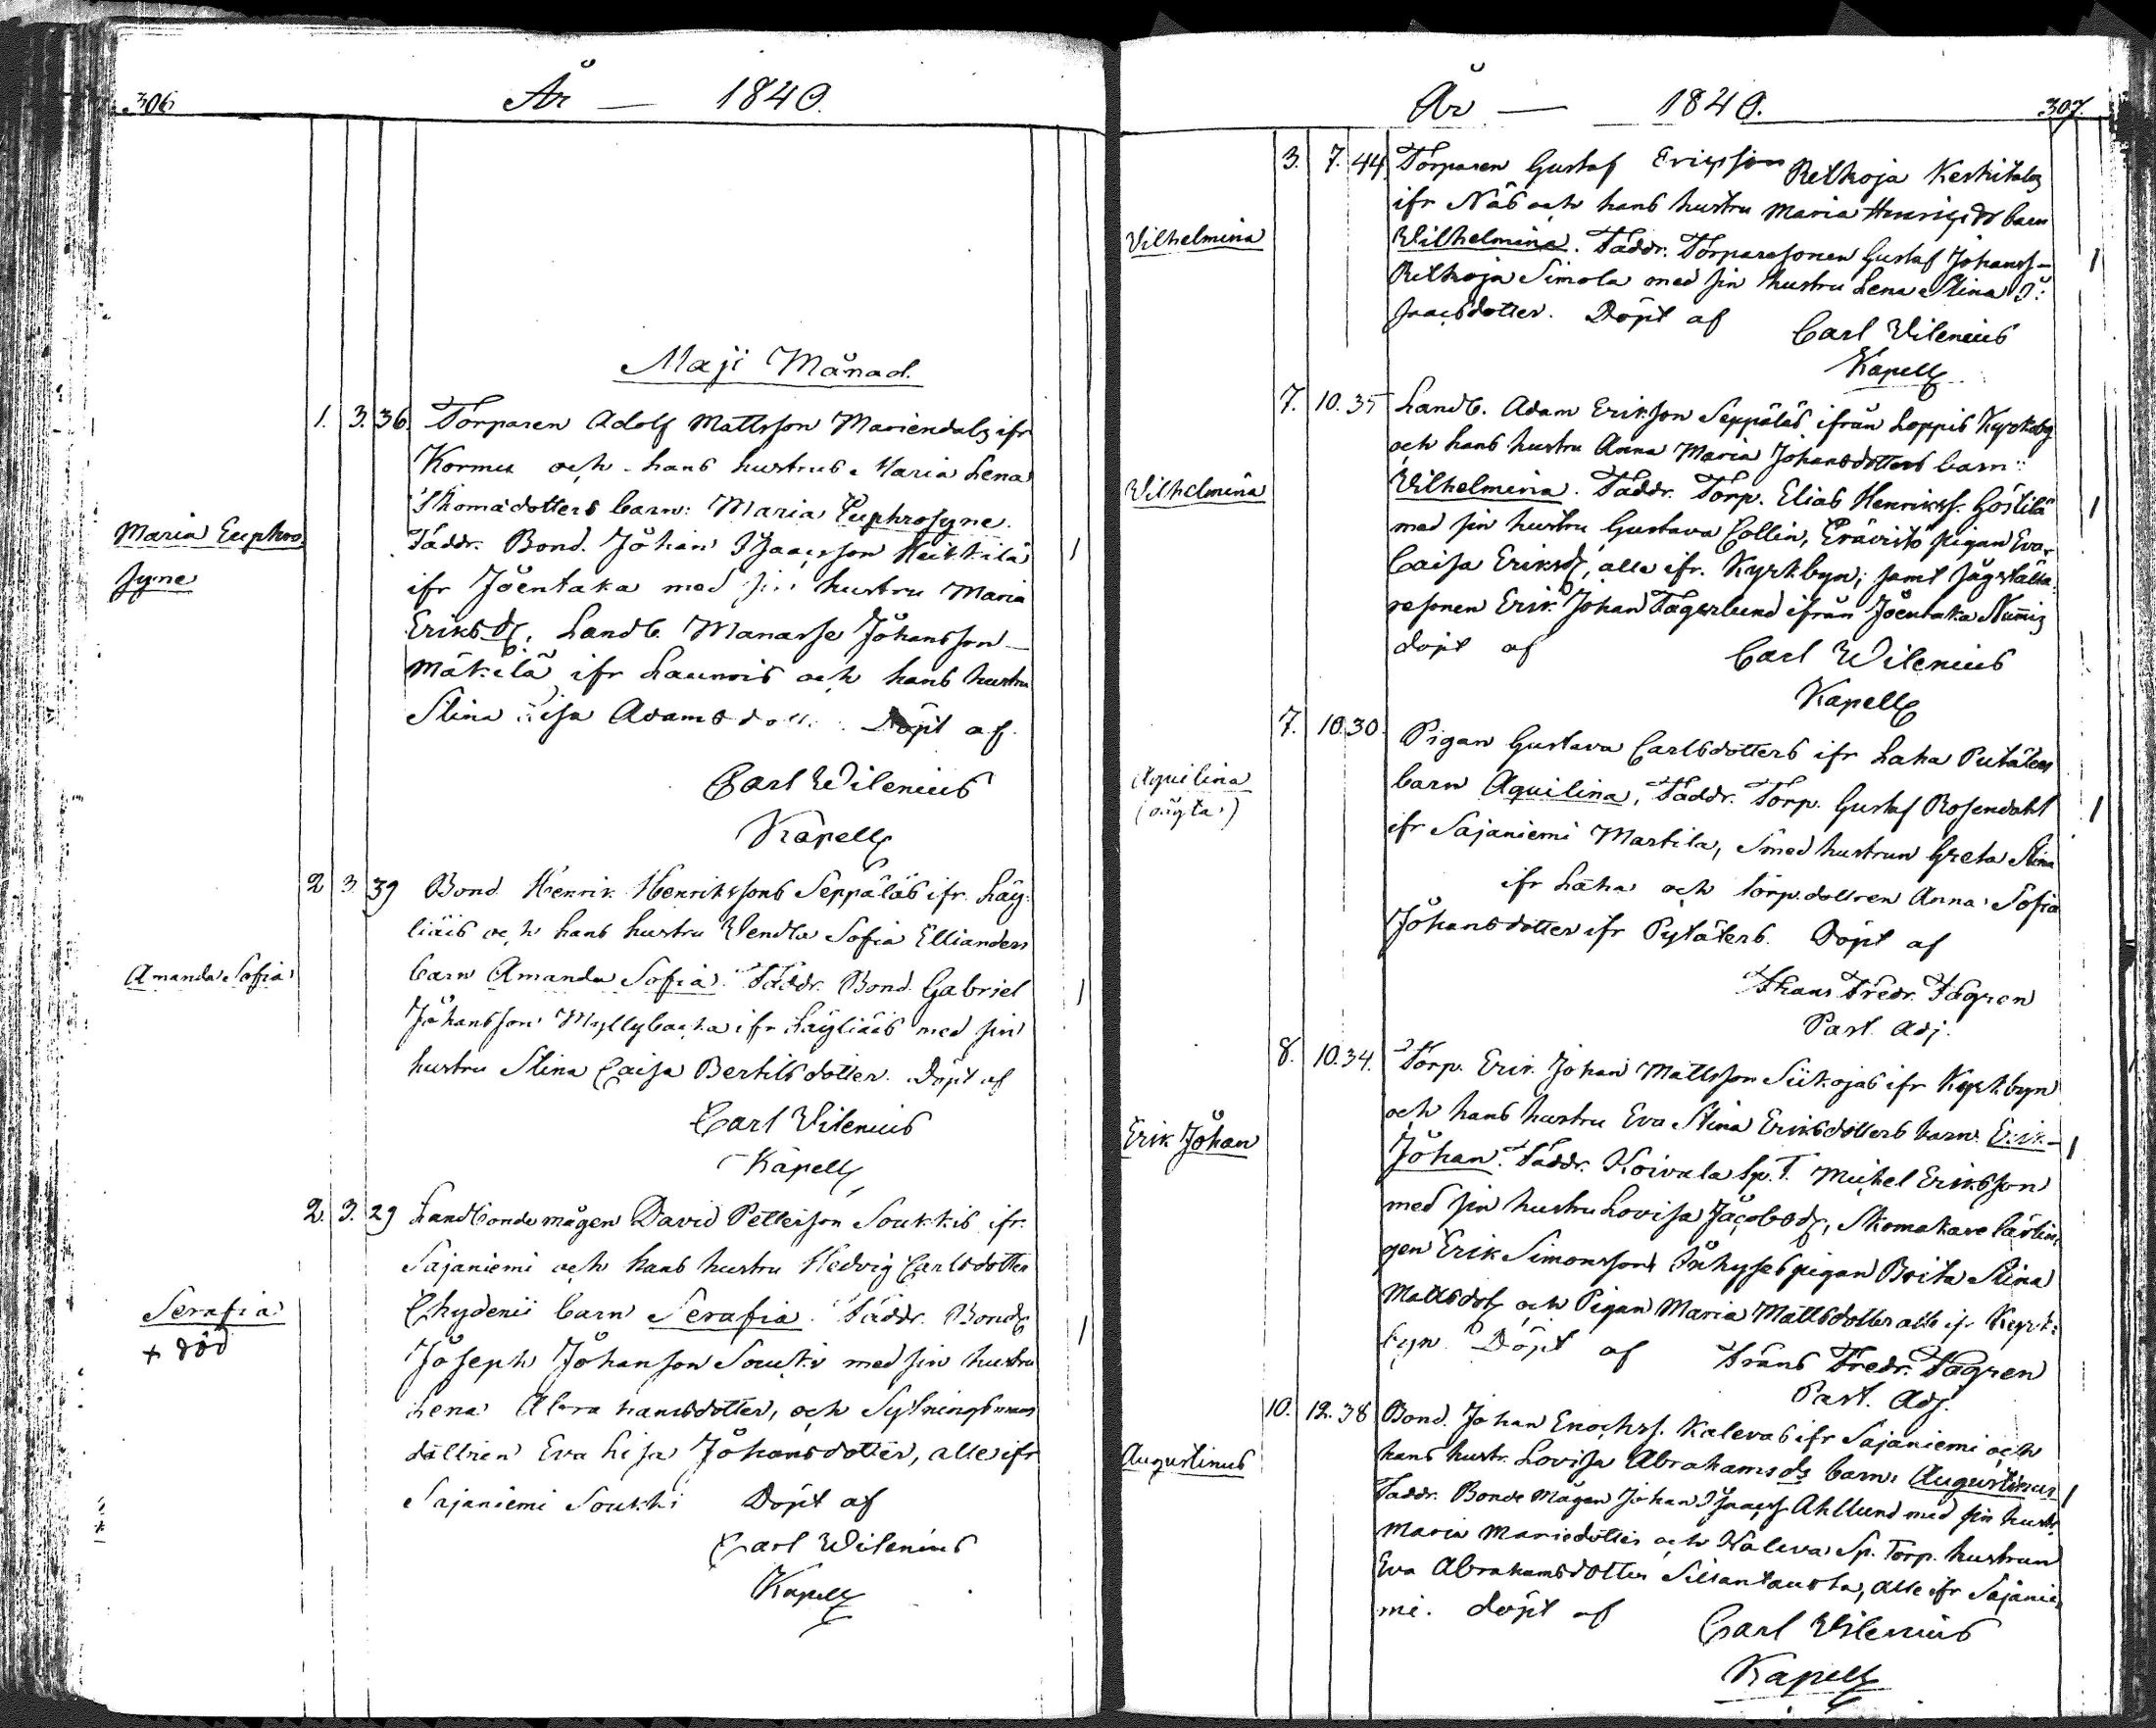 306
År — 1840.
Maji Månad.
1. 3. 36. Torparen Adolf Mattsson Mariendals ifr
Kormu och hans hustrus Maria Lena
Thomædotters barn: Maria Euphrosyne.
Maria Euphro
syne
Faddr. Bond. Johan Isaacsson Heikkilä
ifr Joentaka med sin hustru Maria
Eriksdr. Landb. Manasse Johansson
Mäkilä ifr Launois och hans hustru
Stina Lisa Adamsdott. Döpt af
Carl Wilenius
Kapell
2 3 39 Bond Henrik Henrikssons Seppäläs ifr. Läy-
liäis och hans hustru Wendla Sofia Ellianders
Amanda Sofia
barn Amanda Sofia. Faddr. Bond. Gabriel 1
Johansson Myllybacka ifr Läyliäis med sin
hustru Stina Caisa Bertilsdotter. Döpt af
Carl Vilenius
Kapell
2. 3. 29 Landbonde mågen David Petterson Soukkis ifr.
Sajaniemi och hans hustru Hedvig Carlsdotter
Serafia
+ död
Chydenii barn Serafia. Faddr. Bond 1
Joseph Johanson Soukki med sin hustru
Lena Abrahamsdotter, och Sytningsmans
dottren Eva Lisa Johansdotter, alle ifr
Sajaniemi Soukki Döpt af
Carl Wilenius
Kapell
År — 1840. 307.
3. 7. 44 Torparen Gustaf Ericsson Retkoja Keskitalo
ifr Näs och hans hustru Maria Henricsdr barn
Vilhelmina
Wilhelmina. Faddr. Torparesonen Gustaf Johanss- 1
Retkoja Simola med sin hustru Lena Stina I:
saacsdotter. Döpt af Carl Vilenius
Kapell
7. 10. 35 Landb. Adam Erikson Seppäläs ifrån Loppis Kyrkoby
och hans hustru Anna Maria Johansdotters barn:
Wilhelmina
Vilhelmina. Faddr. Torp. Elias Henrikss. Göstilä 1
med sin hustru Gustava Collin, Erävistö pigan Eva
Caisa Eriksdr, alla ifr. Kyrkbyn; samt Jägställa-
resonen Erik Johan Fagerlund ifrån Joentaka Nummis
döpt af Carl Wilenius
Kapell
7. 10. 30. Pigan Gustava Carlsdotters ifr Laha Putäters
Aquilina
(oägta)
barn Aquilina, Faddr. Torp. Gustaf Rosendahl 1
ifr Sajaniemi Martila, Smed hustrun Greta Stina
ifr Laha och torp.dottren Anna Sofia
Johansdotter ifr Pytäters. Döpt af
Frans Fredr. Fagren
Past. Adj.
8. 10. 34. Torp. Erik Johan Mattsson Siikojas ifr Kyrkbyn
och hans hustru Eva Stina Eriksdotters barn Erik- 1
Erik Johan
Johan. Faddr. Koivula Sp. T. Michel Eriksson
med sin hustru Lovisa Jacobsdr, Skomakare lärlin-
gen Erik Simonsson, Inhyses pigan Brita Stina
Mattsdotr och Pigan Maria Mattsdotter alle ifr Kyrk-
byn Döpt af Frans Fredr. Fagren
Past. Adj.
10. 12. 38 Bond. Johan Enochss. Kalevas ifr Sajaniemi och
Augustinus
hans hustr. Lovisa Abrahamsds barn: Augustinus 1
Faddr. Bonde Mågen Johan Isaacss Ahllund med sin hustr.
Maria Mariædotter och Kaleva Sp. Torp. hustrun
Eva Abrahamsdotter Siltantausta, alle ifr Sajanie-
mi. döpt af Carl Vilenius
Kapell